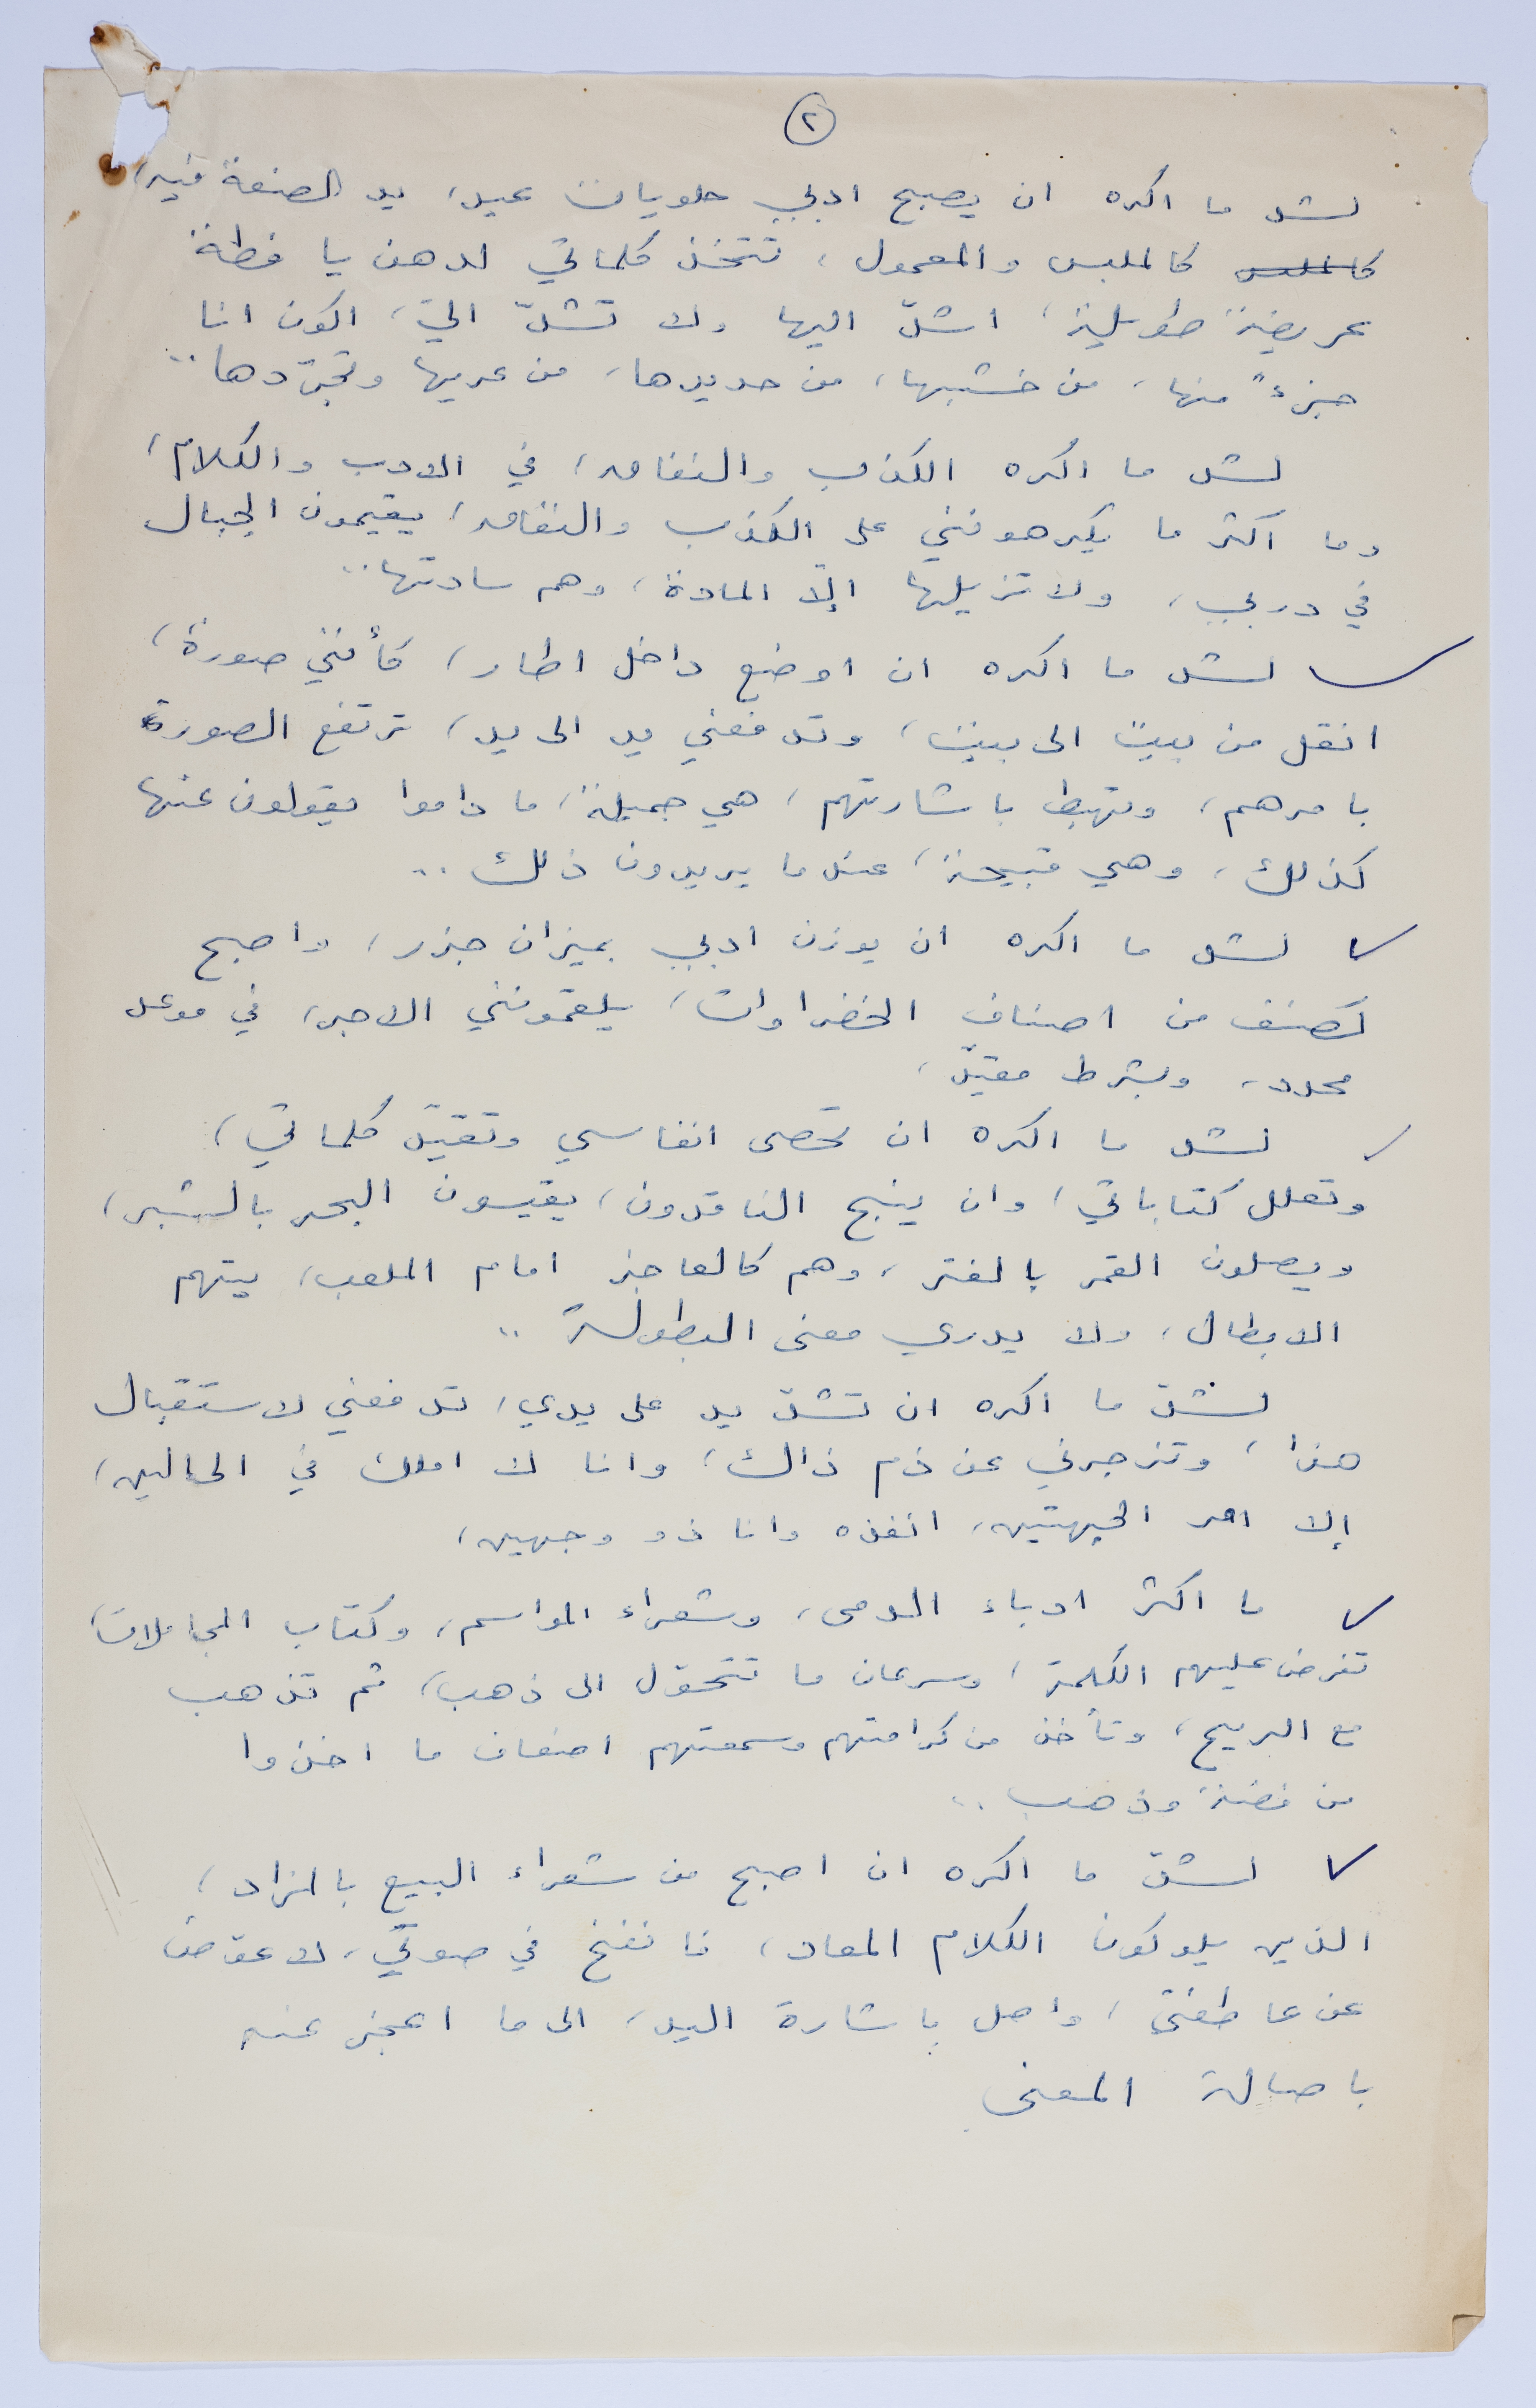 ٢
لشد ما اكره ان يصبح ادبي حلويات عيد، يد الصنعة فيه،
كالملبس كالملبس والمعمول، تتخذ كلماتي لدهن يافطة
عريضة طويلة، اشدّ اليها ولا تشدّ اليّ، اكون انا
جزءً منها، من خشبها، من حديدها، من عريها وتجرّدها..
لشد ما اكره الكذب والنفاق، في الادب والكلام،
وما اكثر ما يكرهونني على الكذب والنفاق، يقيمون الجبال
في دربي، ولا تزيلها إلاّ المادة، وهم سادتها..
لشد ما اكره ان اوضع داخل اطار، كأنني صورة،
انقل من بيت الى بيت، وتدفعني يد الى يد، ترتفع الصورة
بامرهم، وتهبط باشارتهم، هي جميلة، ما داموا يقولون عنها
كذلك، وهي قبيحة، عندما يريدون ذلك..
لشد ما اكره ان يوزن ادبي بميزان جزر، واصبح
كصنف من اصناف الخضراوات، يلقمونني الاجر، في موعد
محدد، وبشرط مقيّد،
لشد ما اكره ان تحصى انفاسي وتقيّد كلماتي،
وتعلل كتاباتي، وان ينبح الناقدون، يقيسون البحر بالشبر،
ويصلون القمر بالفتر، وهم كالعاجز امام الملعب، يتهم
الابطال، ولا يدري معنى البطولة..
لشدّ ما اكره ان تشدّ يد على يدي، تدفعني لاستقبال
هذا، وتزجرني عن ذم ذاك، وانا لا املك في الحالين،
إلا امر الجهتين، انفذه وانا ذو وجهين،
ما اكثر ادباء الدمى، وشعراء المواسم، وكتاب المجاملات،
تفرض عليهم الكلمة، وسرعان ما تتحوّل الى ذهب، ثم تذهب
مع الريح، وتأخذ من كرامتهم وسمعتهم اضعاف ما اخذوا
من فضة وذهب..
لشدّ ما اكره ان اصبح من شعراء البيع بالمزاد،
الذين يلوكون الكلام المعاد، فانفخ في صوتي، لاعوّض
عن عاطفتي، واصل باشارة اليد، الى ما اعجز عنه
باصالة المعنى